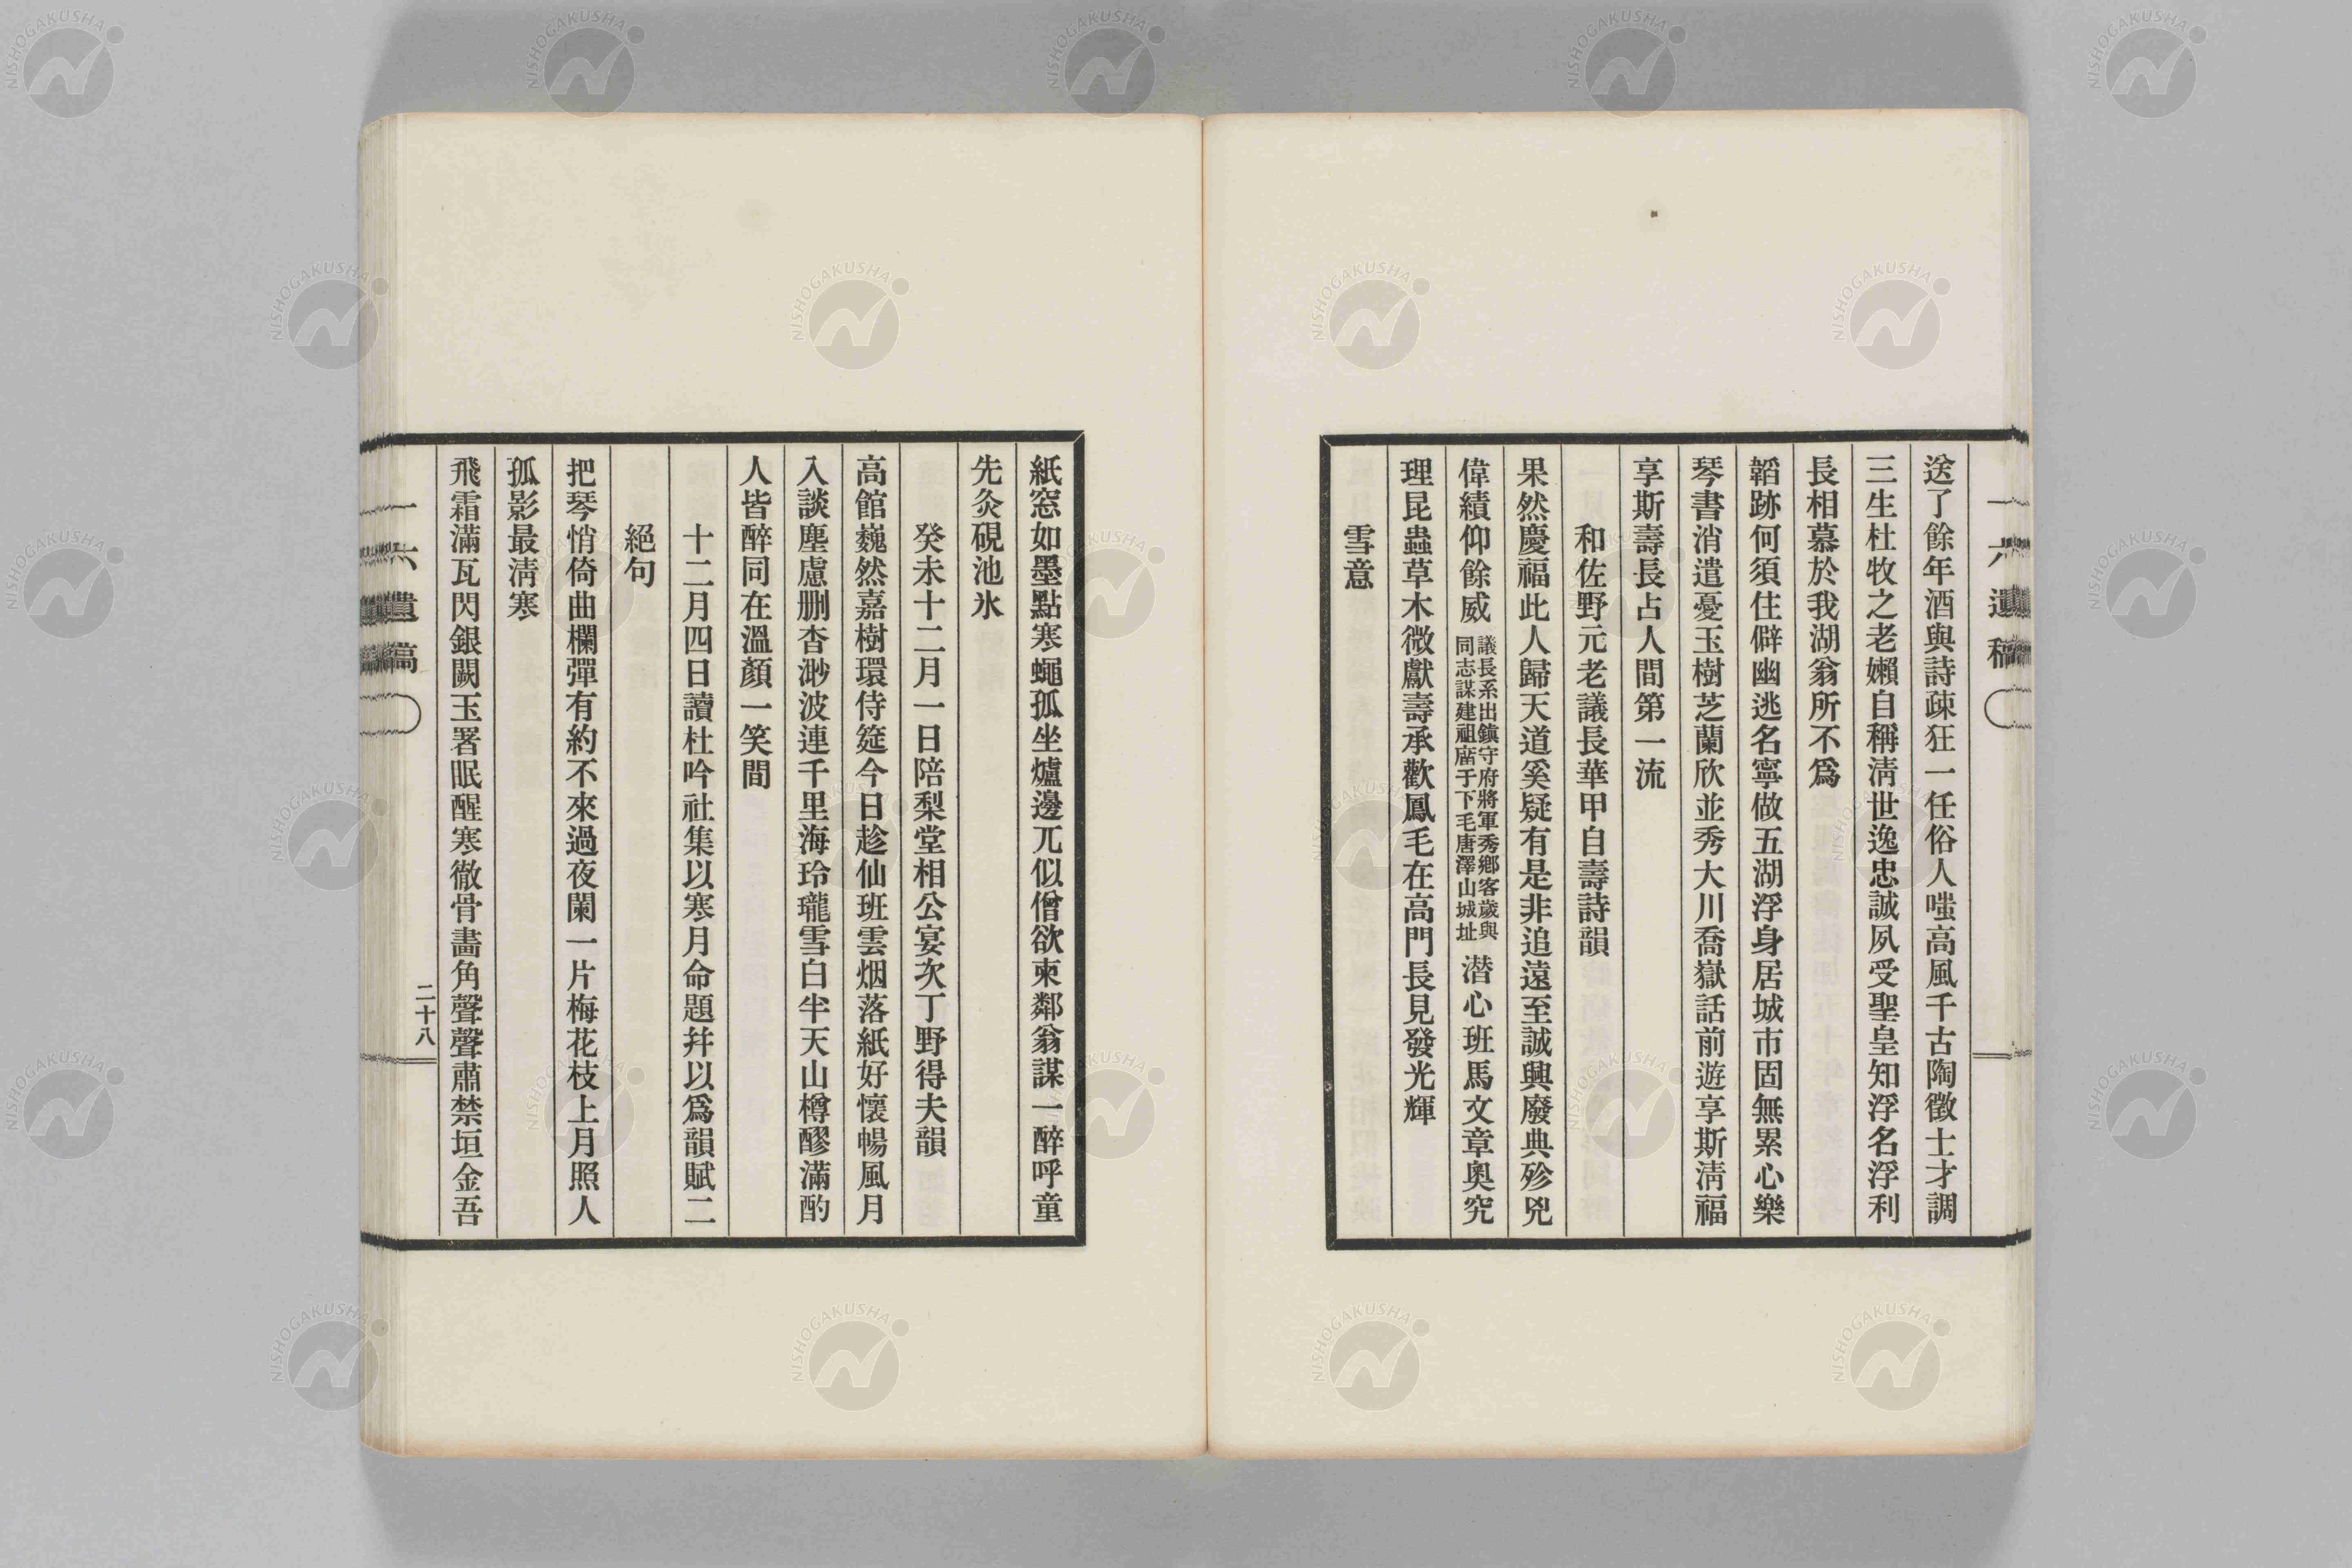 一六遺稿
送了餘年酒與詩疎狂一任俗人嗤高風千古陶徵士才調
三生杜牧之老嬾自稱淸世逸忠誠夙受聖皇知浮名浮利
長相慕於我湖翁所不爲
韜跡何須住僻幽逃名寧做五湖浮身居城市固無累心樂
琴書消遣憂玉樹芝蘭欣並秀大川喬嶽話前遊享斯淸福
享斯壽長占人間第一流
和佐野元老議長華甲自壽詩韻
果然慶福此人歸天道奚疑有是非追遠至誠興廢典殄兇
偉績仰餘威議長系出鎭守府將軍秀鄕客歲與同志謀建祖廟于下毛唐澤山城址潛心班馬文章奧究
理昆蟲草木微獻壽承歡鳳毛在高門長見發光輝
雪意
紙窓如墨點寒蠅孤坐爐邊兀似僧欲柬鄰翁謀一醉呼童
先灸硯池氷
癸未十二月一日陪梨堂相公宴次丁野得夫韻
高館巍然嘉樹環侍筵今日趁仙班雲烟落紙好懷暢風月
入談塵慮刪杳渺波連千里海玲瓏雪白半天山樽醪滿酌
人皆醉同在溫顏一笑間
十二月四日讀杜吟社集以寒月命題幷以爲韻賦二
絕句
把琴悄倚曲欄彈有約不來過夜闌一片梅花枝上月照人
孤影最淸寒
飛霜滿瓦閃銀闕玉署眠醒寒徹骨畵角聲聲肅禁垣金吾
一六遺稿
二十八
NISHOGAKUSHA